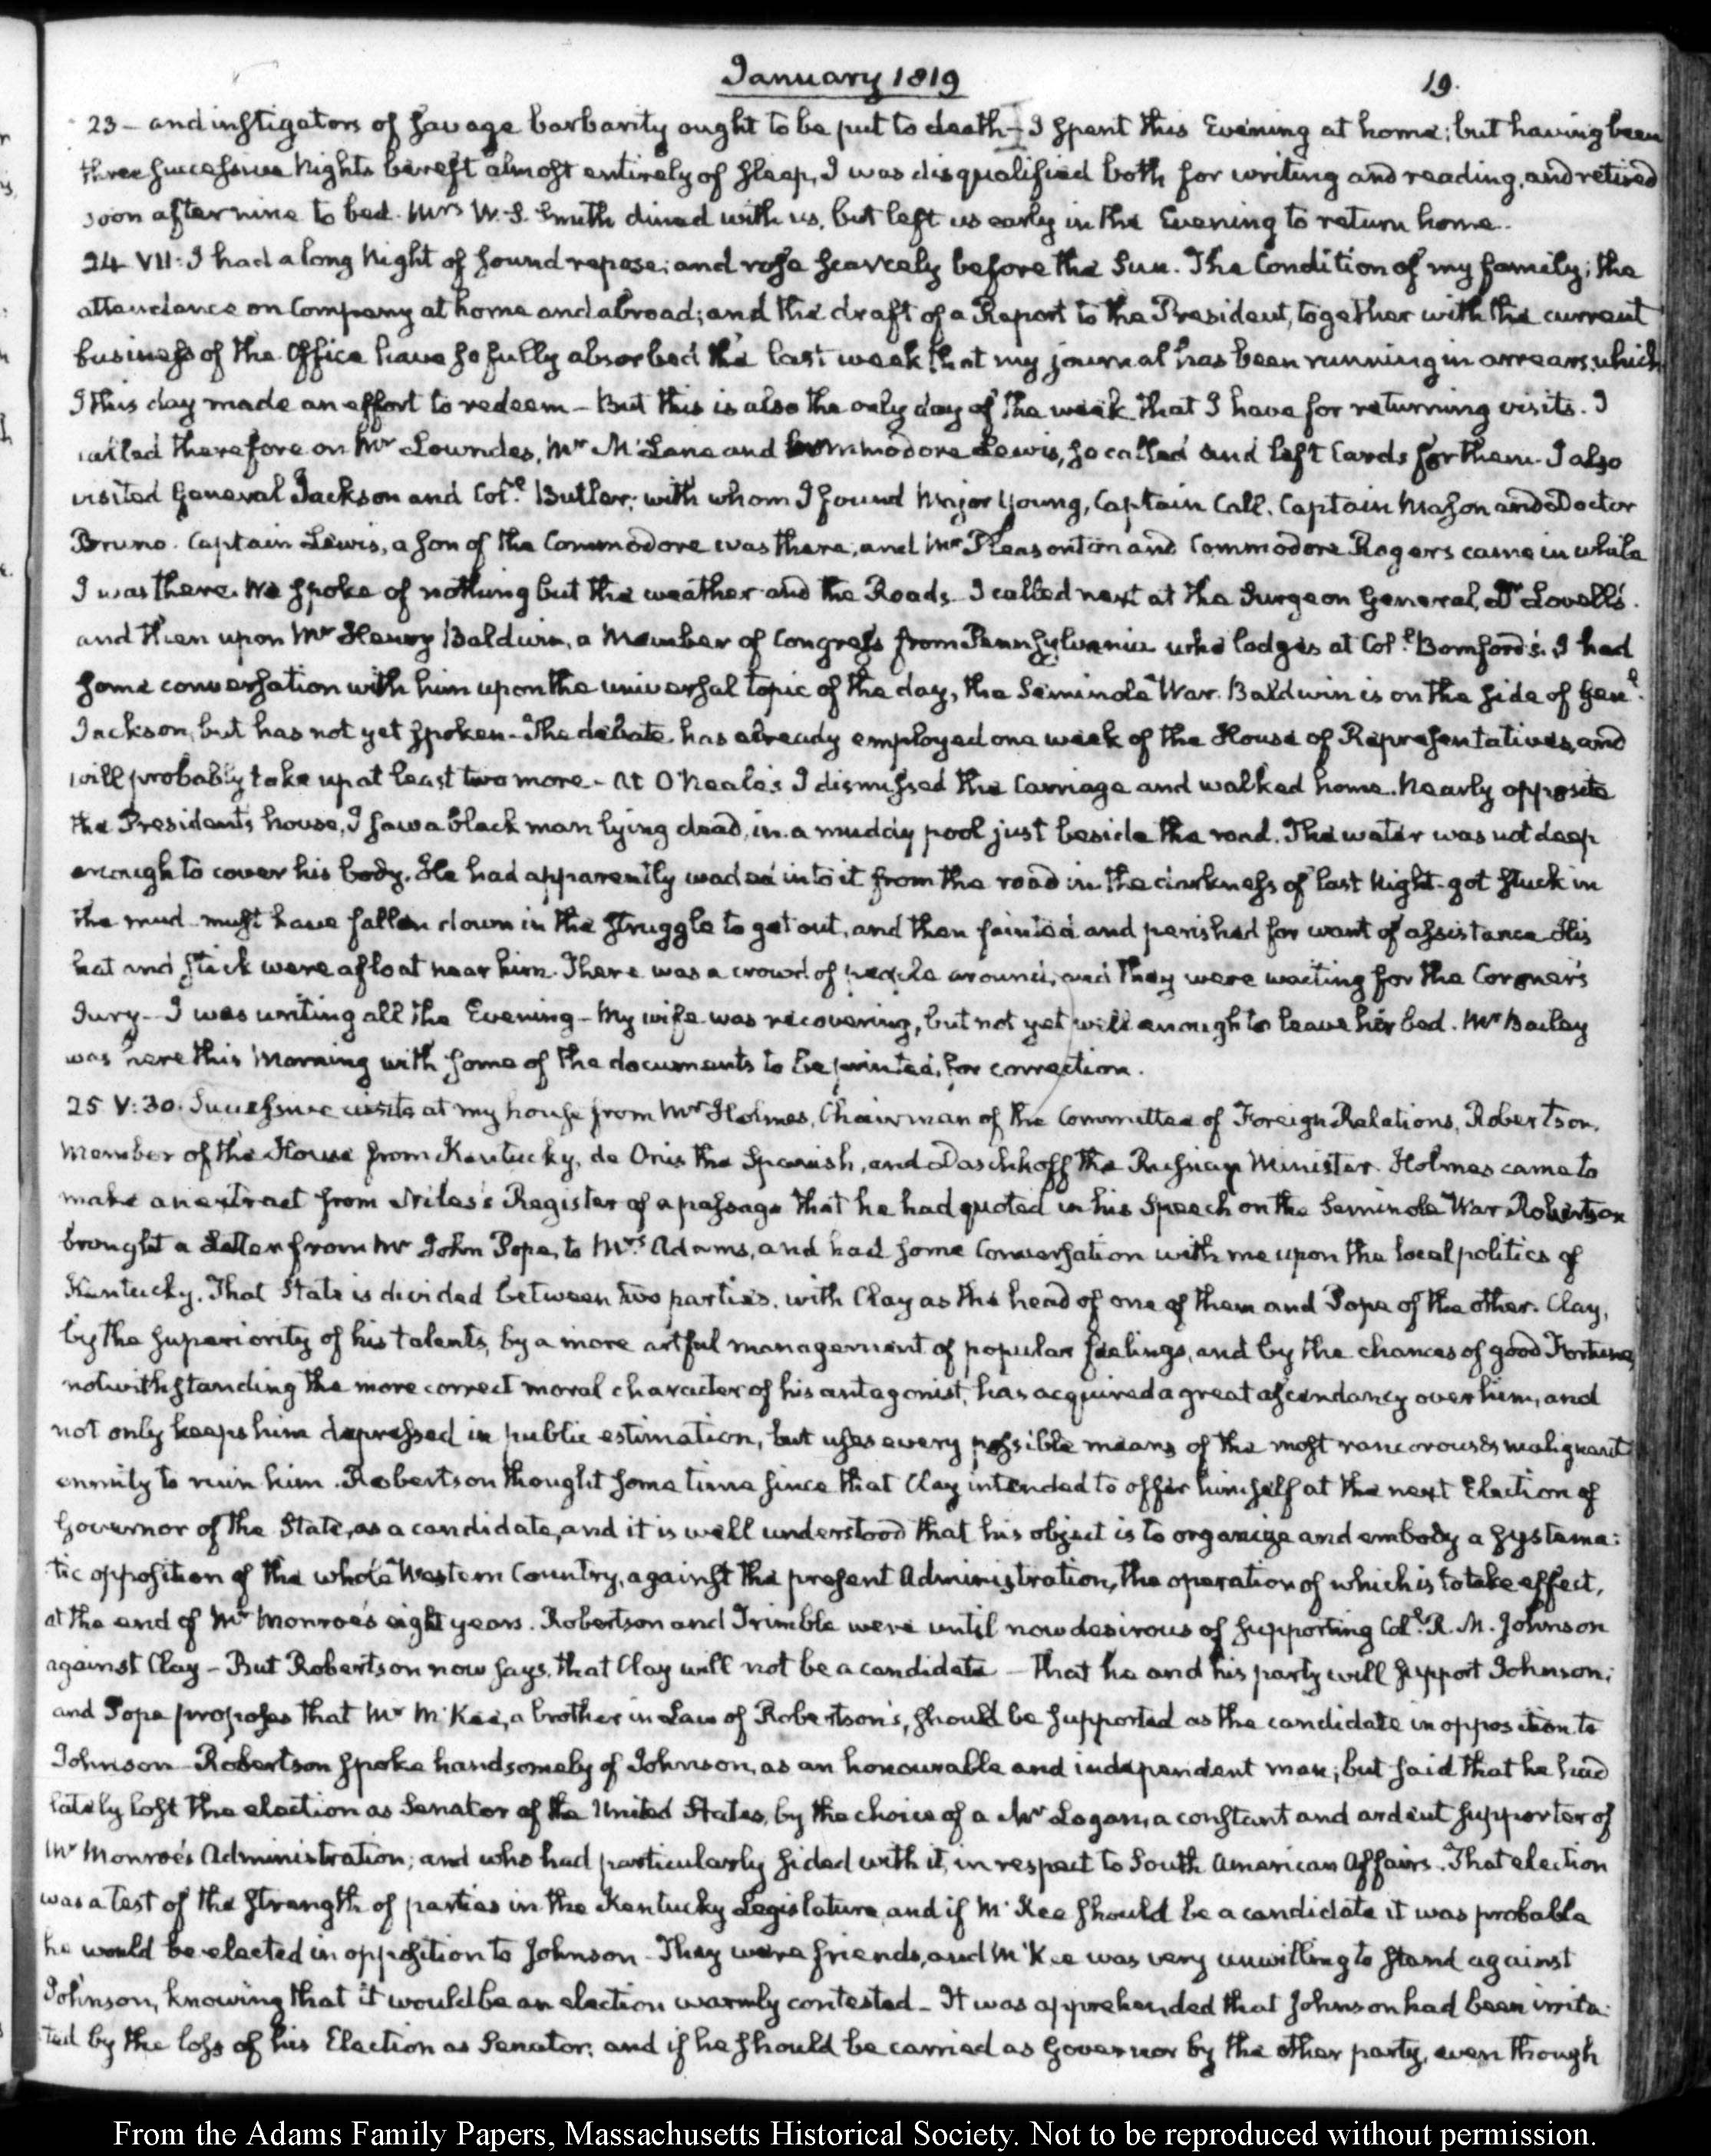 January 1819
19.
23 – and instigators of savage barbarity ought to be put to death – I spent this Evening at home; but having been
three successive Nights bereft almost entirely of sleep, I was disqualified both for writing and reading, and retired
soon after nine to bed. Mrs W. S. Smith dined with us, but left us early in the Evening to return home.
24 VII. I had a long Night of sound repose; and rose scarcely before the Sun. The Condition of my family; the
attendance on Company at home and abroad; and the draft of a Report to the President, together with the current
business of the Office have so fully absorbed the last week that my journal has been running in arrears, which
I this day made an effort to redeem – But this is also the only day of the week that I have for returning visits. I
called therefore on Mr Lowndes, Mr McLane and Commodore Lewis, so called and left Cards for them. I also
visited General Jackson and Coll. Butler; with whom I found Major Young, Captain Call, Captain Mason and Doctor
Bruno. Captain Lewis, a son of the Commodore was there, and Mr Pleasonton and Commodore Rogers came in while
I was there. We spoke of nothing but the weather and the Roads. I called next at the Surgeon General, Dr Lovell's.
and then upon Mr Henry Baldwin, a Member of Congress from Pennsylvania who lodges at Coll. Bomford's. I had
some conversation with him upon the universal topic of the day, the Seminole War. Baldwin is on the side of Genl.
Jackson, but has not yet spoken – The debate has already employed one week of the House of Representatives, and
will probably take up at least two more – At O'Neale's I dismissed the Carriage and walked home. Nearly opposite
the President's house, I saw a black man lying dead, in a muddy pool just beside the road. The water was not deep
enough to cover his body. He had apparently waded into it from the road in the darkness of last Night – got stuck in
the mud – must have fallen down in the struggle to get out, and then fainted and perished for want of assistance – His
hat and stick were afloat near him. There was a crowd of people around, and they were waiting for the Coroner's
Jury – I was writing all the Evening – My wife was recovering, but not yet well enough to leave her bed. Mr Bailey
was here this Morning with some of the documents to be printed, for correction.
25 V:30. Successive visits at my house from Mr Holmes, Chairman of the Committee of Foreign Relations, Robertson,
Member of the House from Kentucky, de Onis the Spanish, and Daschkoff the Russian Minister. Holmes came to
make an extract from Niles's Register of a passage that he had quoted in his Speech on the Seminole War. Robertson
brought a Letter from Mr John Pope, to Mrs Adams, and had some Conversation with me upon the local politics of
Kentucky. That State is divided between two parties, with Clay as the head of one of them and Pope of the other. Clay,
by the superiority of his talents, by a more artful management of popular feelings, and by the chances of good Fortune,
notwithstanding the more correct moral character of his antagonist, has acquired a great ascendancy over him, and
not only keeps him depressed in public estimation, but uses every possible means of the most rancorous & malignant
enmity to ruin him. Robertson thought some time since that Clay intended to offer himself at the next Election of
Governor of the State, as a candidate, and it is well understood that his object is to organize and embody a systema:
:tic opposition of the whole Western Country, against the present Administration, the operation of which is to take effect,
at the end of Mr Monroe's eight years. Robertson and Trimble were until now desirous of supporting Coll. R. M. Johnson
against Clay – But Robertson now says, that Clay will not be a candidate – That he and his party will support Johnson;
and Pope proposes that Mr McKee, a brother in Law of Robertson's, should be supported as the candidate in opposition to
Johnson – Robertson spoke handsomely of Johnson, as an honourable and independent man; but said that he had
lately lost the election as Senator of the United States, by the choice of a Mr Logan, a constant and ardent supporter of
Mr Monroe's Administration; and who had particularly sided with it, in respect to South American Affairs. That election
was a test of the strength of parties in the Kentucky Legislature, and if McKee should be a candidate it was probable
he would be elected in opposition to Johnson – They were friends, and McKee was very unwilling to stand against
Johnson, knowing that it would be an election warmly contested – It was apprehended that Johnson had been irrita:
:ted by the loss of his Election as Senator; and if he should be carried as Governor by the other party, even though
From the Adams Family Papers, Massachusetts Historical Society. Not to be reproduced without permission.